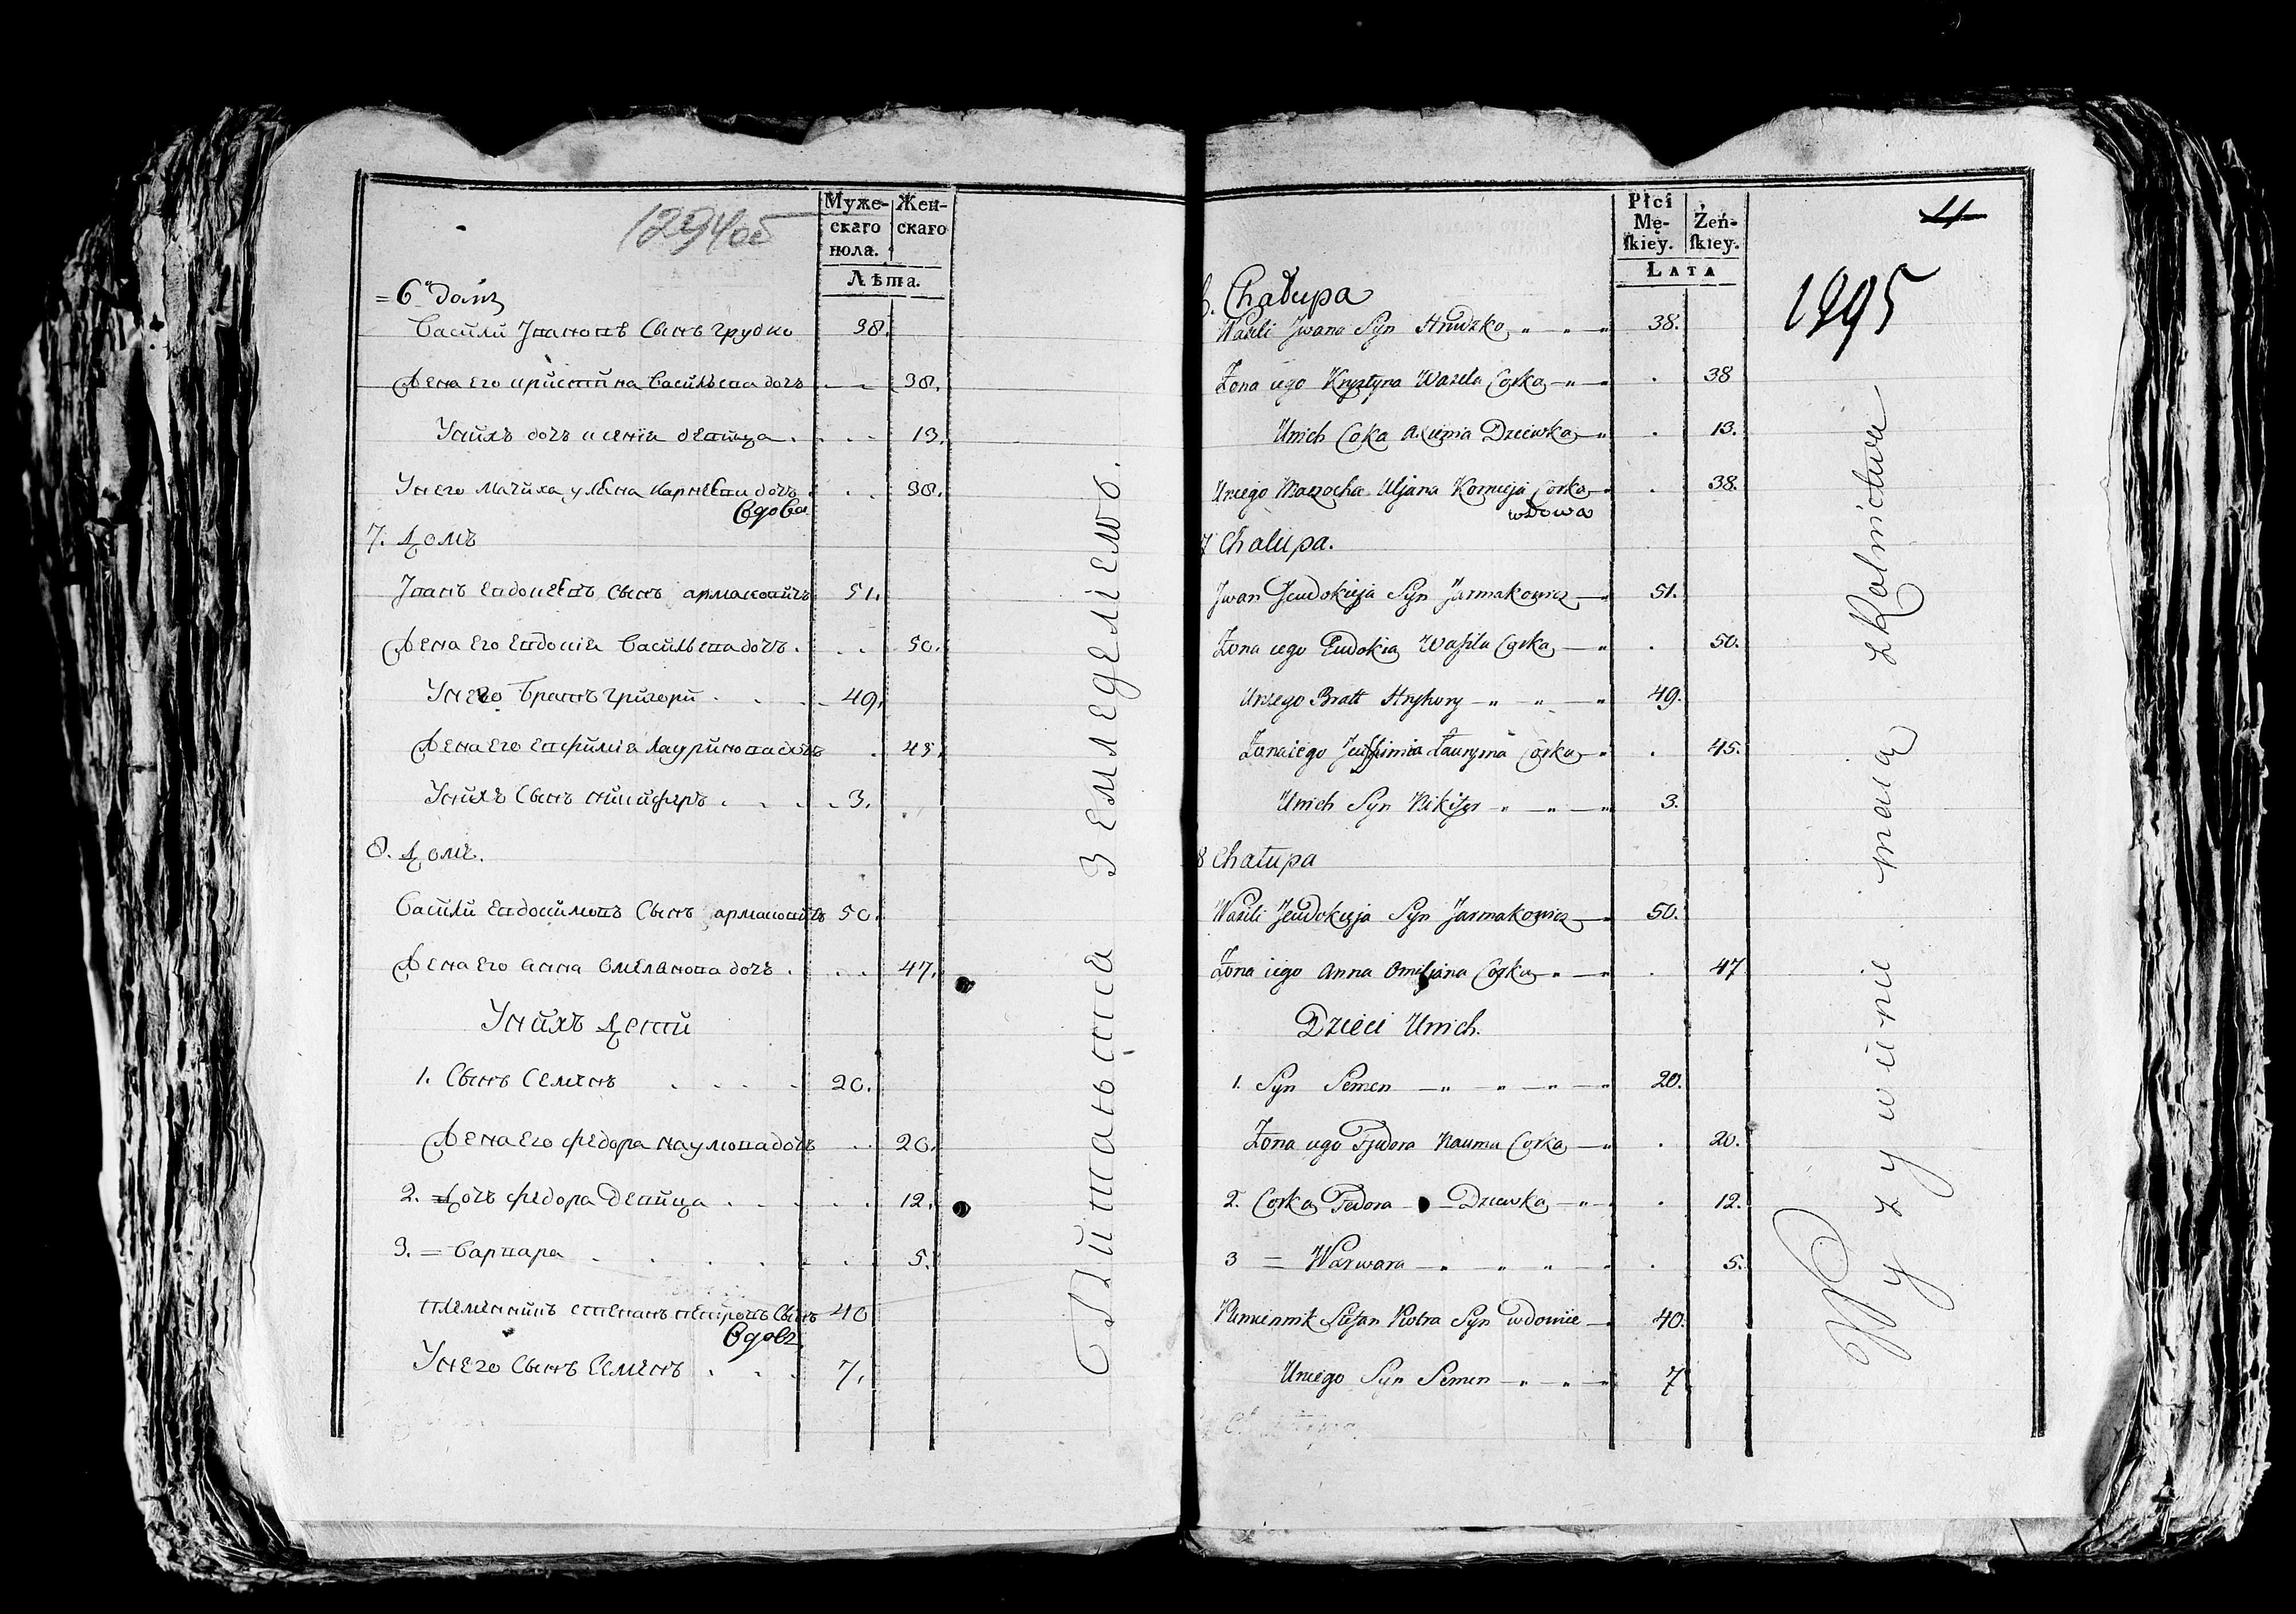 1294об
Муже-
скаго
пола.
Жен-
скаго
Лѣта.
=6й домъ
Васили Івановъ Сынъ грудко 38.
Жена его кристина Васильева дочъ 38.
Унихъ дочъ ксеніа девица 13.
Унего Мачиха уляна карнеева дочъ 38.
Вдова
7. Домъ
Іванъ Евдокеевъ Сынъ ярмаковичъ 51.
Жена его Евдокіа Васильева дочъ 50.
Унего братъ григори 49.
Жена его Евфиміа Лауринова дочъ 45.
Унихъ Сынъ никифиръ 3.
8. Домъ.
Васили Евдокимовъ Сынъ ярмаковичъ 50.
Жена его анна омелянова дочъ 47.
Унихъ Дети
1. Сынъ Семенъ 20.
Жена его федора наумова дочъ 20.
2. Дочъ федора девица 12.
3. = Варвара 5.
племенникъ степанъ петровъ Сынъ 40
Вдовъ
Унего Сынъ Семенъ 7.
Питаьтса Земледелием.
4
1295
Płci
Mę-
ſkiey.
Żeń-
ſkiey.
Lata
6. Chałupa
Wasili Jwana Syn Hrudzko 38.
Żona iego Krystyna Wasila Corka 38
Unich Coka Axienia Dziewka 13.
Uniego Maczocha Uljana Kornieja Corka 38.
wdowa
7 Chalupa.
Jwan Jeudokieja Syn Jarmakowicz 51.
Żona iego Eudokia Wasila Corka 50.
Uniego Bratt Hryhory 49.
Żona iego Jeufimia Łauryna Corka 45.
Unich Syn Nikifer 3.
8 Chałupa
Wasili Jeudokieja Syn Jarmakowicz 50.
Żona iego Anna Omiljana Corka 47
Dzieci Unich.
1. Syn Semen 20.
Żona iego Fjedora Nauma Corka 20.
2. Corka Fedora Dziewka 12.
3 = Warwara 5.
Plemiennik Stefan Piotra Syn wdowiec 40.
Uniego Syn Semen 7
Wyzywienie maią z Rolnictwa